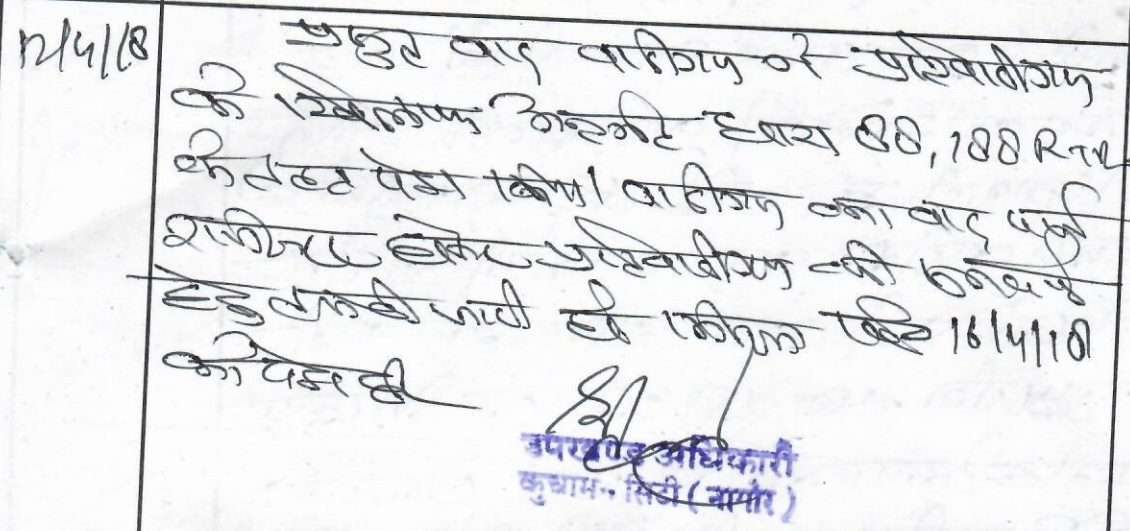 12/4/18
प्रस्तुत वाद वादीगण ने प्रतिवादीगण
के खिलाफ अन्तर्गत धारा 88, 188 RTA
के तहत पेश किया। वादीगण का वाद पत्र
रजिस्टर होकर प्रतिवादीगण की
हेतु तलबी जारी हो। मिसल दिनांक 16/4/18
को पेश हो
उपखण्ड अधिकारी
कुचामन सिटी (नागौर)